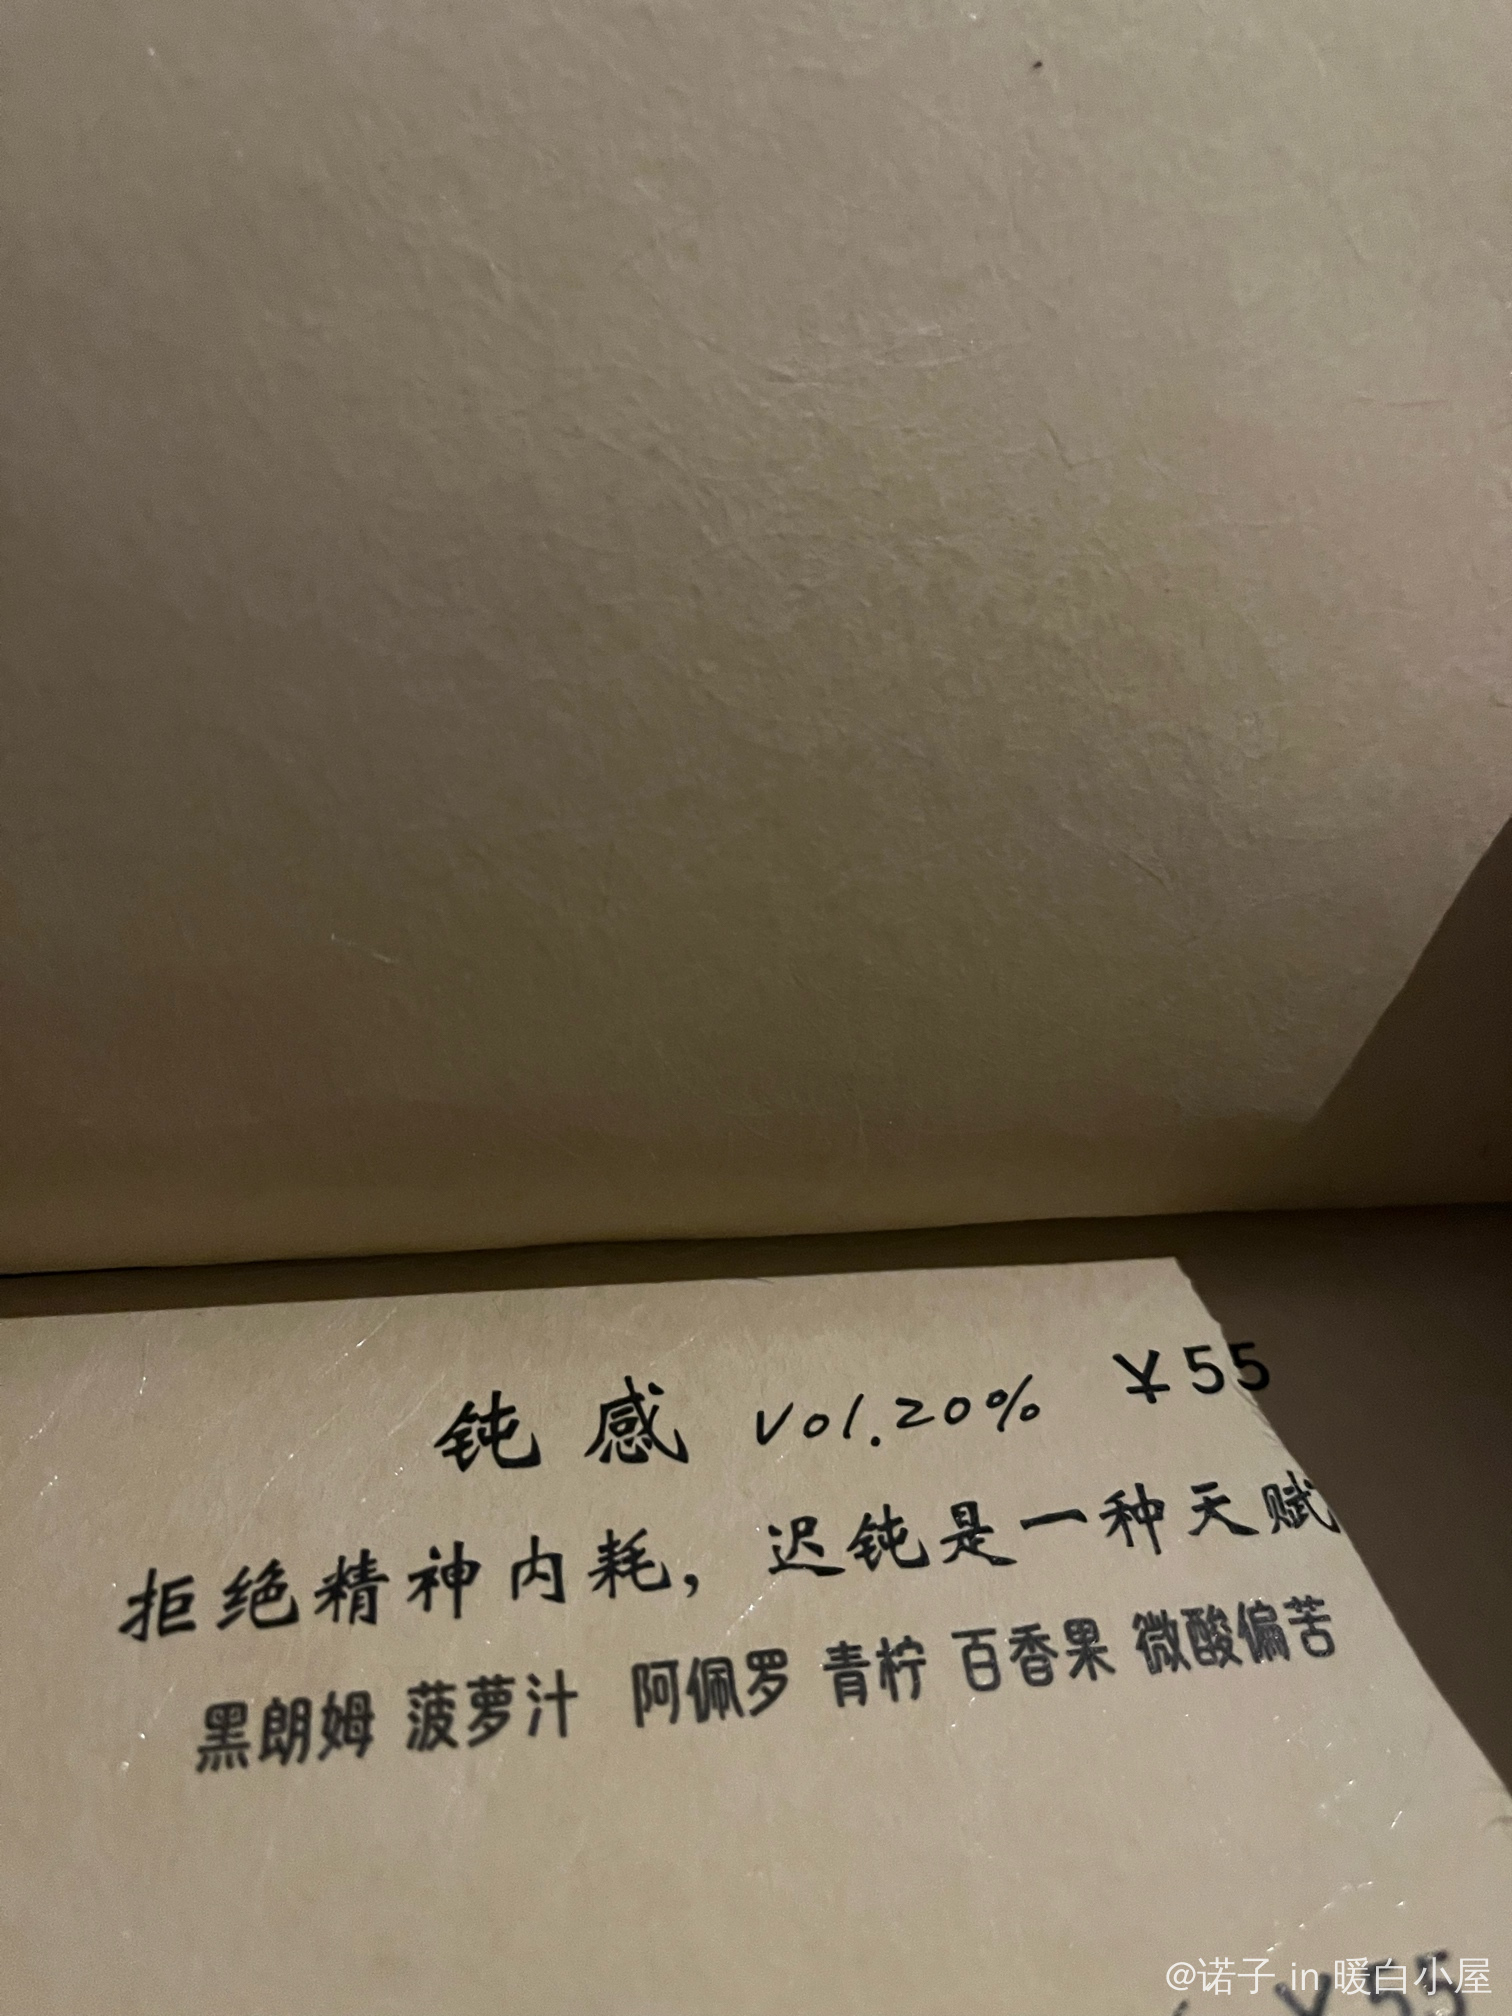 钝感 Vol.20% ￥55
拒绝精神内耗，迟钝是一种天赋
黑朗姆 菠萝汁 阿佩罗 青柠 百香果 微酸偏苦
@诺子 in 暖白小屋